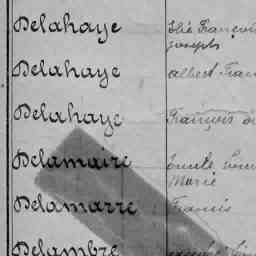 Delahaye Elie François
Joseph
Delahaye Albert Fran
Delahaye François
Delamaire
Marie
Delamarre Francis
Delambre